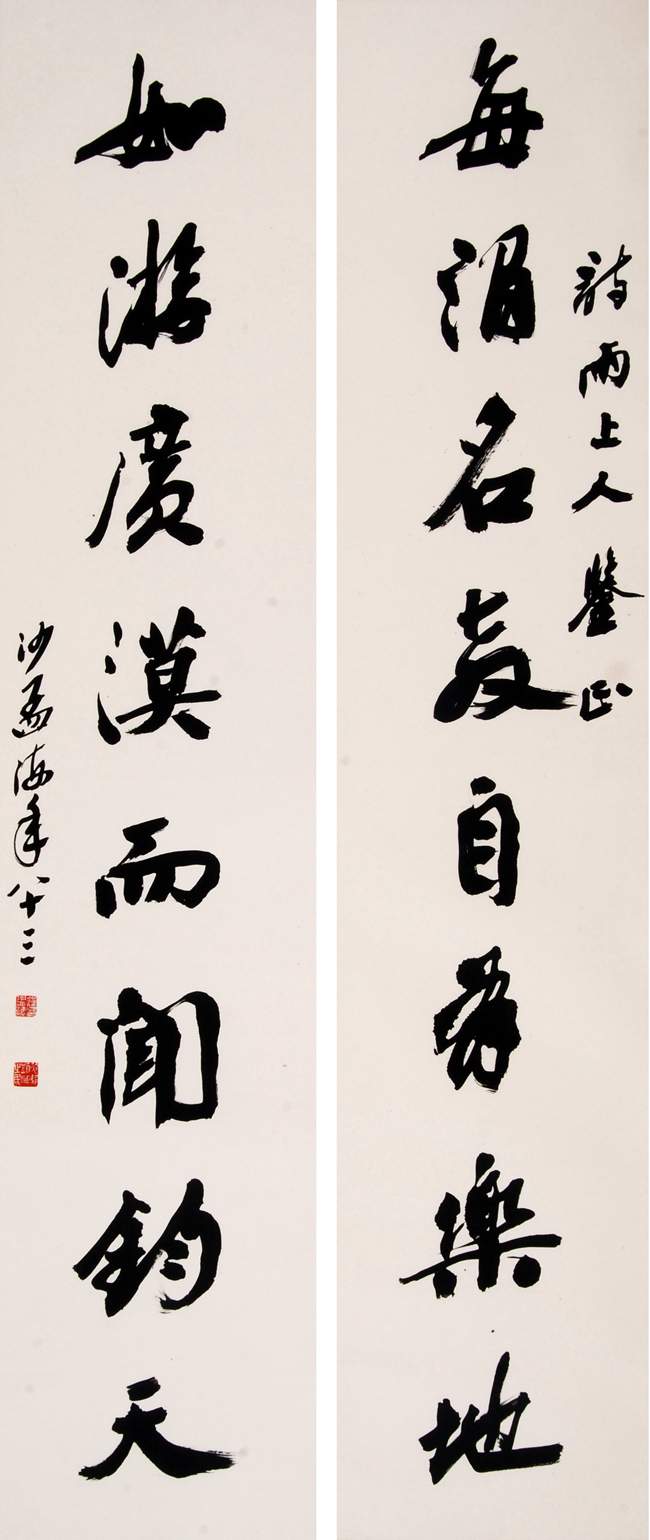 詩雨上人鑒正
每謂名教自為樂地
如游廣漠而聞鈞天
沙孟海年八十三